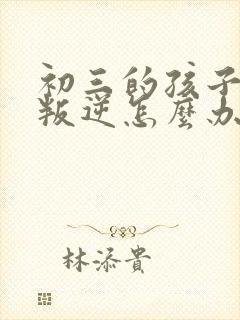 初三的孩子
叛逆怎麼办
林添貴